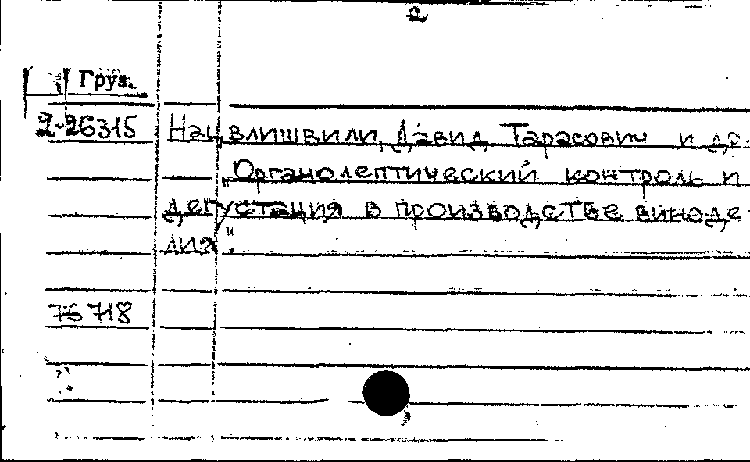 а
Груз.
2-26315 Нацвлишвили, Давид Тарасович и др.
"Органолептический контроль и
дегустация в производстве виноде
лия".
75 718